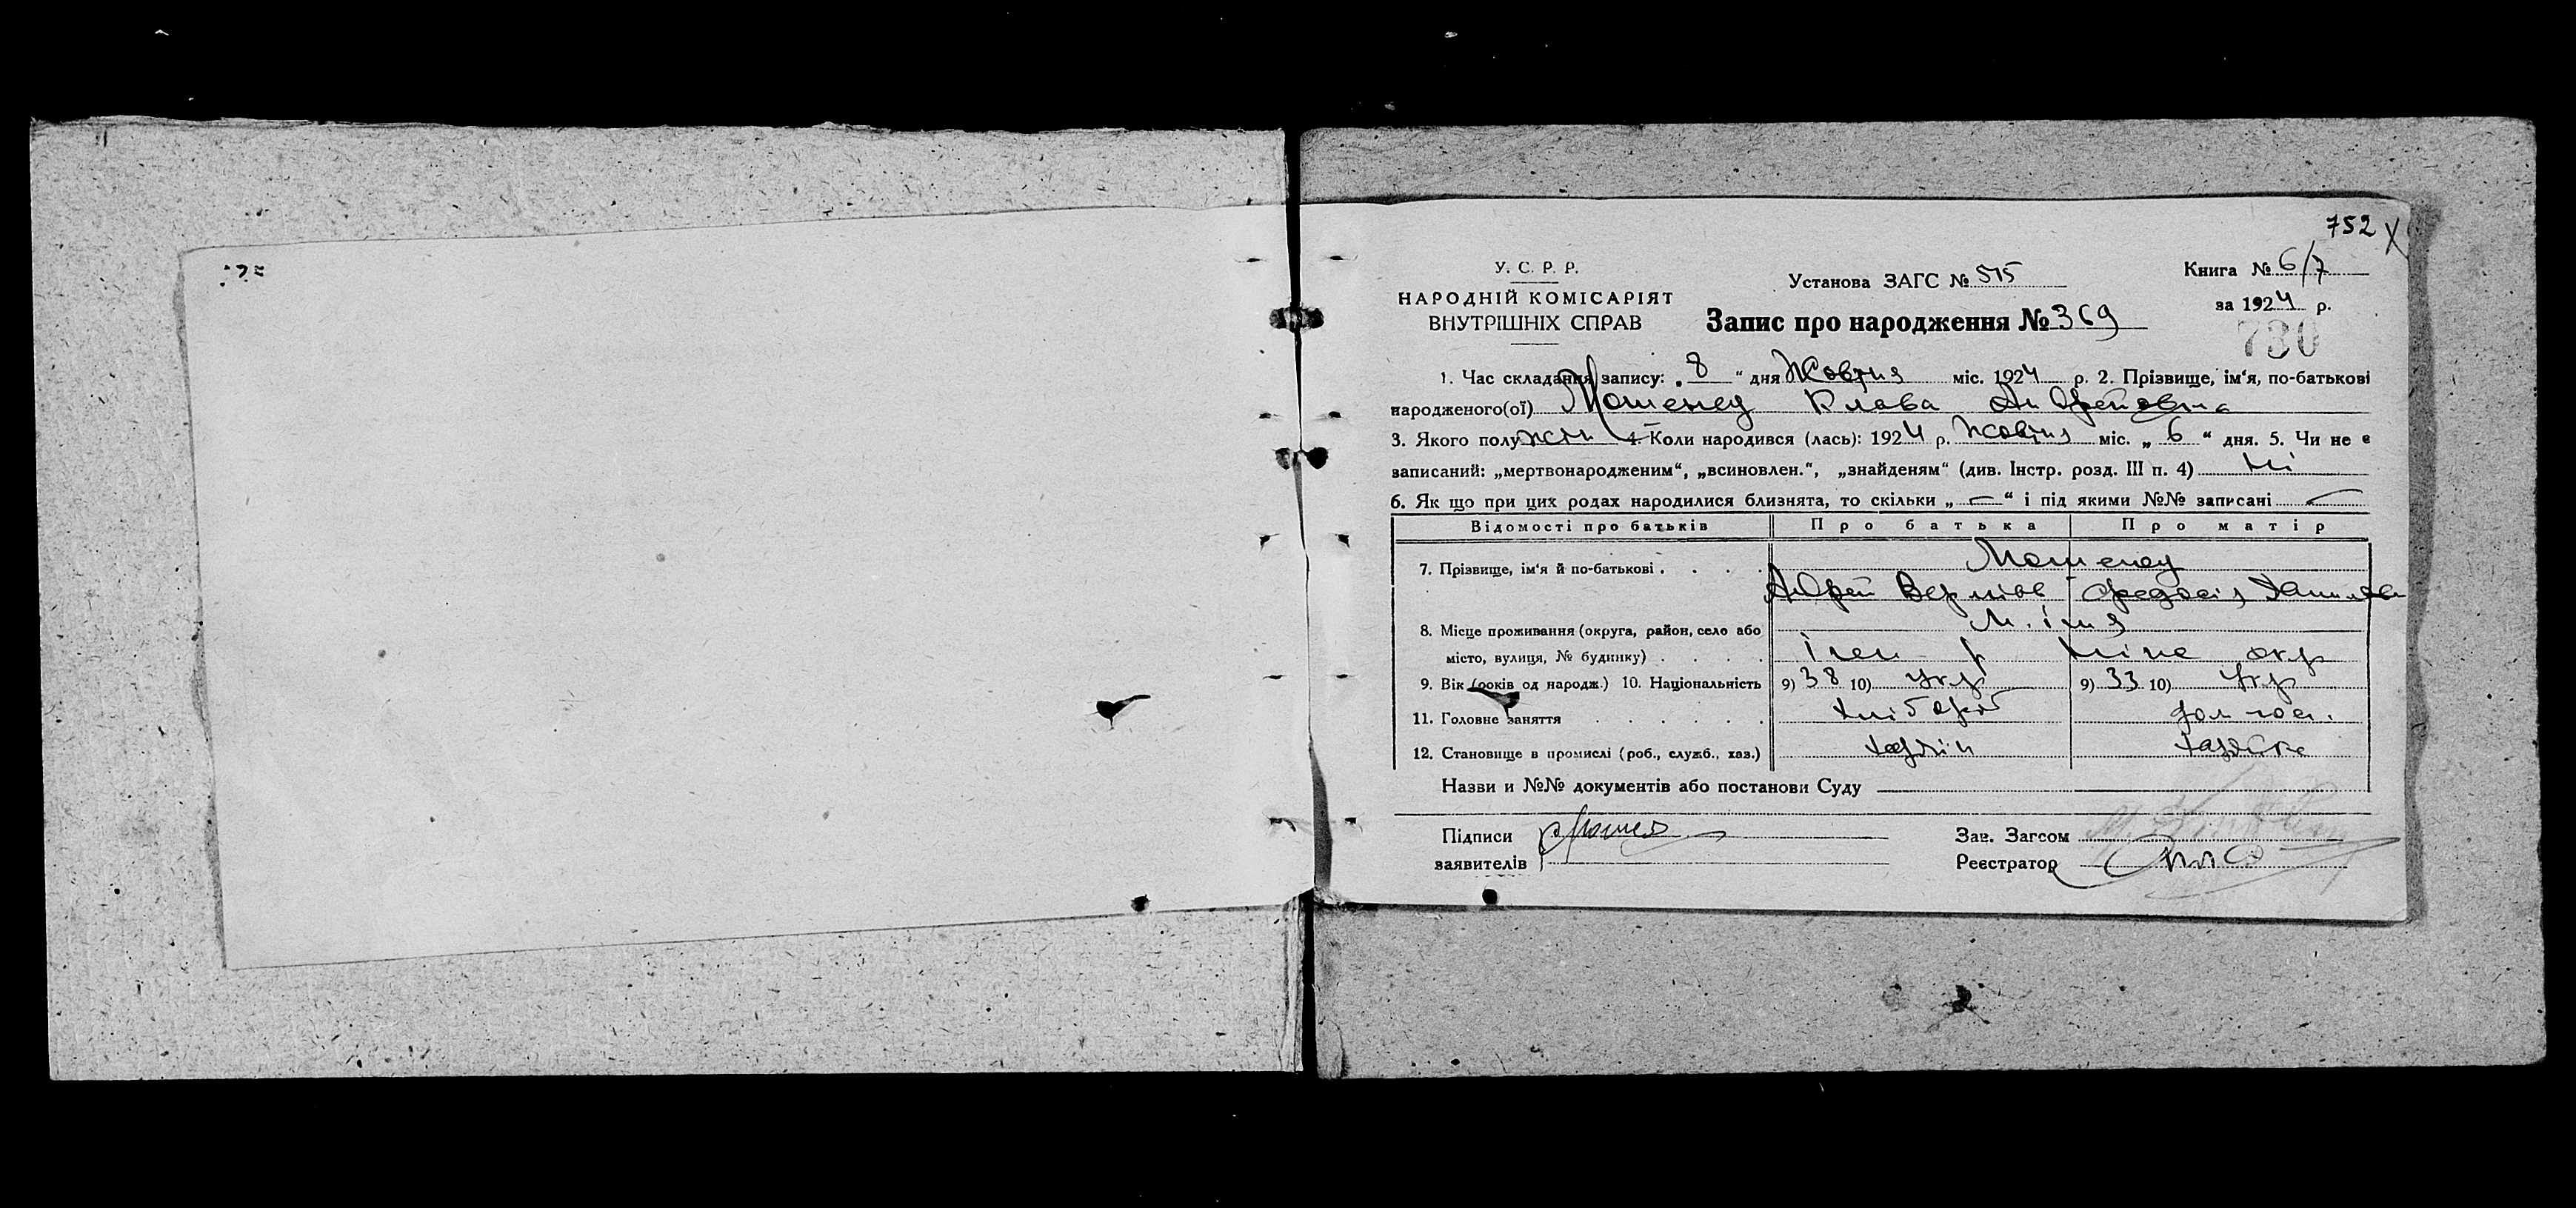 752 X
У. С. Р. Р.
НАРОДНІЙ КОМІСАРІЯТ
ВНУТРІШНІХ СПРАВ
Установа ЗАГС № 515
Запис про народження № 369
Книга № 6/7
за 1924 р.
730
1. Час складання запису: „8“ дня Жовтня міс. 1924 р. 2. Прізвище, ім‘я, по-батькові
народженого(ої) Клава Андреївна
3. Якого полу жін 4. Коли народився (лась): 1924 р. Жовтня міс. „6“ дня. 5. Чи не є
записаний: „мертвонародженим“, „всиновлен.“, „знайденям“ (див. Інстр. розд. III п. 4) Ні
6. Як що при цих родах народилися близнята, то скільки „—“ і під якими №№ записані —
Відомості про батьків Про батька Про матір
7. Прізвище, ім‘я й по-батькові
Андрей
8. Місце проживання (округа, район, село або
м. Ічня
місто, вулиця, № будинку) Ічен р Ніже окр
9. Вік (років од народж.) 10. Національність 9) 38 10) Укр 9) 33 10) Укр
11. Головне заняття хлібороб дом гос.
12. Становище в промислі (роб., служб., хаз.) хазяін хазяйка
Назви и №№ документів або постанови Суду
Підписи
заявителів
Зав. Загсом
Реєстратор